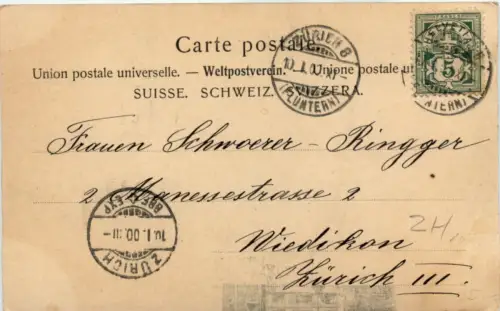 Carte postale.
Union postale universelle. — Weltpostverein. — Unione postale
SUISSE. SCHWEIZ. SVIZZERA.
ZÜRICH 8
(FLUNTERN)
HELVETIA
5
Frauen Schwoerer-Ringger
2 Manessestrasse 2
Wiedikon
Zürich III.
ZH.
BRF. EXP.
10. I. 00. III-
ZÜRICH